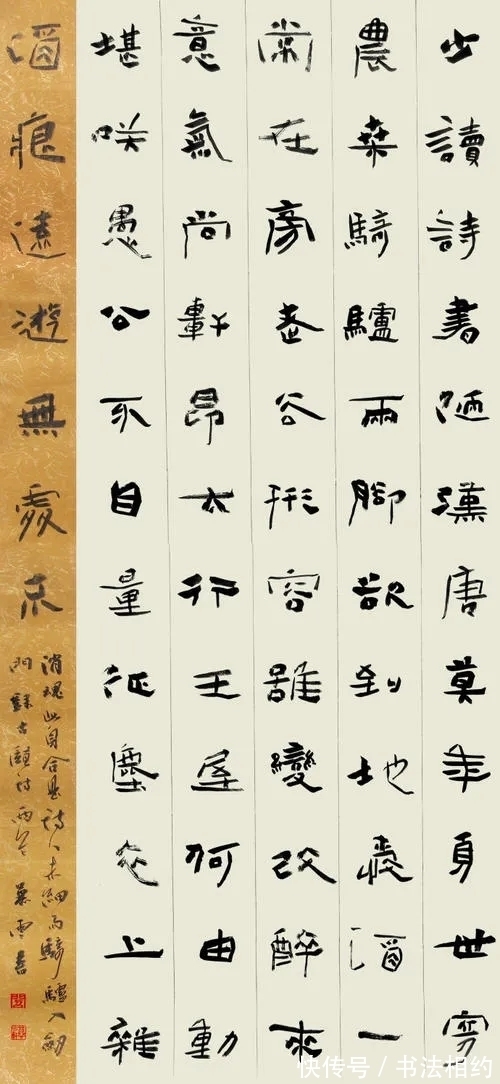 少讀詩書陋漢唐莫年身世寄
農桒騎驢兩腳欲到地愛酒一
常在旁老去形容雖變改醉來
意氣尚軒昂太行王屋何由動
堪咲愚公不自量征塵衣上雜
酒痕遠遊無處不
消魂此身合是詩人未細雨騎驢入劍
門 古 詩兩首 雲書
快传号／书法相约